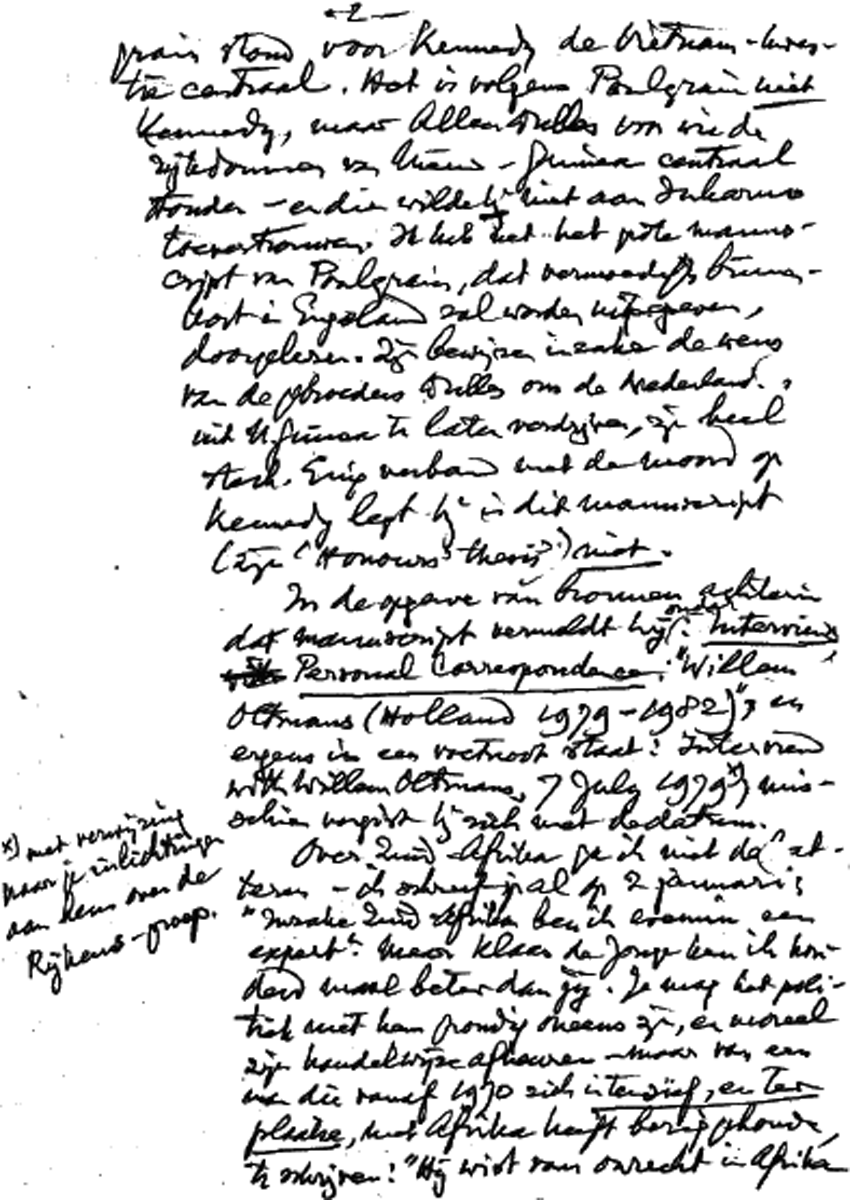 -2-
grain stond voor Kennedy de Vietnam-kwes-
tie centraal. Het is volgens Poulgrain niet
Kennedy, maar Allen Dulles voor wie de
rijkdommen van Nieuw-Guinea centraal
stonden - en die wilde hij niet aan Sukarno
toevertrouwen. Ik heb het hele grote manus-
cript van Poulgrain, dat vermoedelijk binnen-
kort in Engeland zal worden uitgegeven,
doorgelezen. Zijn bewijzen inzake de wens
van de gebroeders Dulles om de Nederland.s
uit N. Guinea te laten verdrijven, zijn heel
sterk. Enig verband met de moord op
Kennedy legt hij in dit manuscript
(zijn "Honours thesis") niet.
In de opgave van bronnen achterin
dat manuscript vermeldt hij onder: Interviews
Personal Correspondence: "Willem
Oltmans (Holland 1979-1982)", en
ergens in een voetnoot staat: Interview
with Willem Oltmans, 7 July 1979 *) mis-
schien vergist hij zich met de datum.
*) met verwijzing
naar je inlichtingen
aan hem over de
Rijkens-groep.
Over Zuid-Afrika ga ik niet
- ik schreef je al op 2 januari:
"Inzake Zuid-Afrika ben ik evenmin een
expert". Maar Klaas de Jonge ken ik hon-
derd maal beter dan jij. Je mag het poli-
tiek met hem grondig oneens zijn, en moreel
zijn handelwijze afkeuren - maar van een
man die vanaf 1970 zich intensief, en ter
plaatse, met Afrika heeft beziggehouden,
te schrijven: "Hij wist van onrecht in Afrika